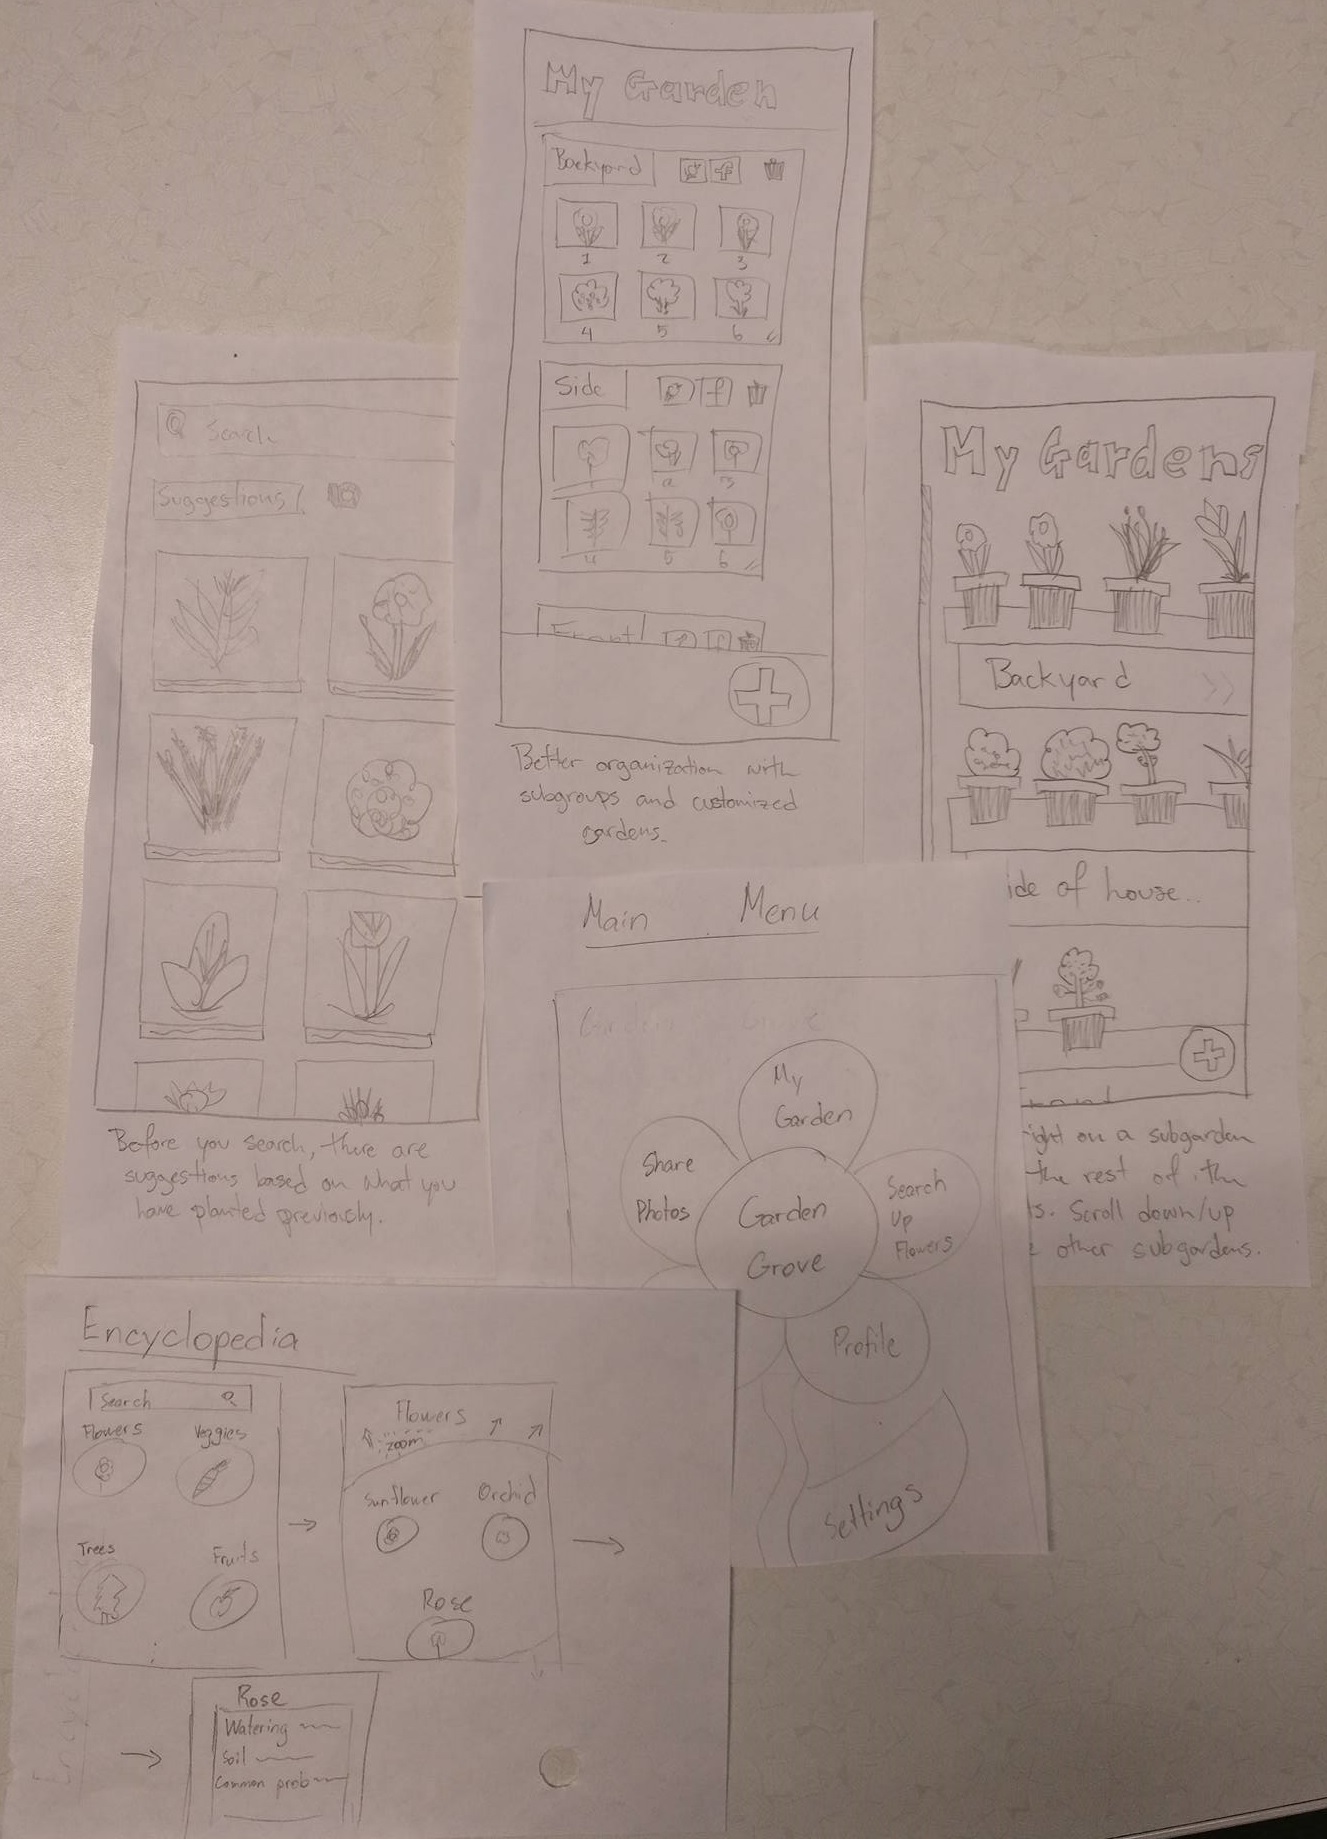 My Garden
Backyard
1 2 3
4 5 6
Side
2 3
4 5 6
Front
Better organization with
subgroups and customized
gardens.
Search
Suggestions
Before you search, there are
suggestions based on what you
have planted previously.
My Gardens
Backyard >>
ide of house..
ight on a subgarden
the rest of the
s. Scroll down/up
other subgardens.
Main Menu
Garden Grove
My
Garden
Share
Photos
Garden
Grove
Search
Up
Flowers
Profile
Settings
Encyclopedia
Search
Flowers Veggies
Trees Fruits
Flowers
zoom
Sunflower Orchid
Rose
Rose
Watering
Soil
Common prob